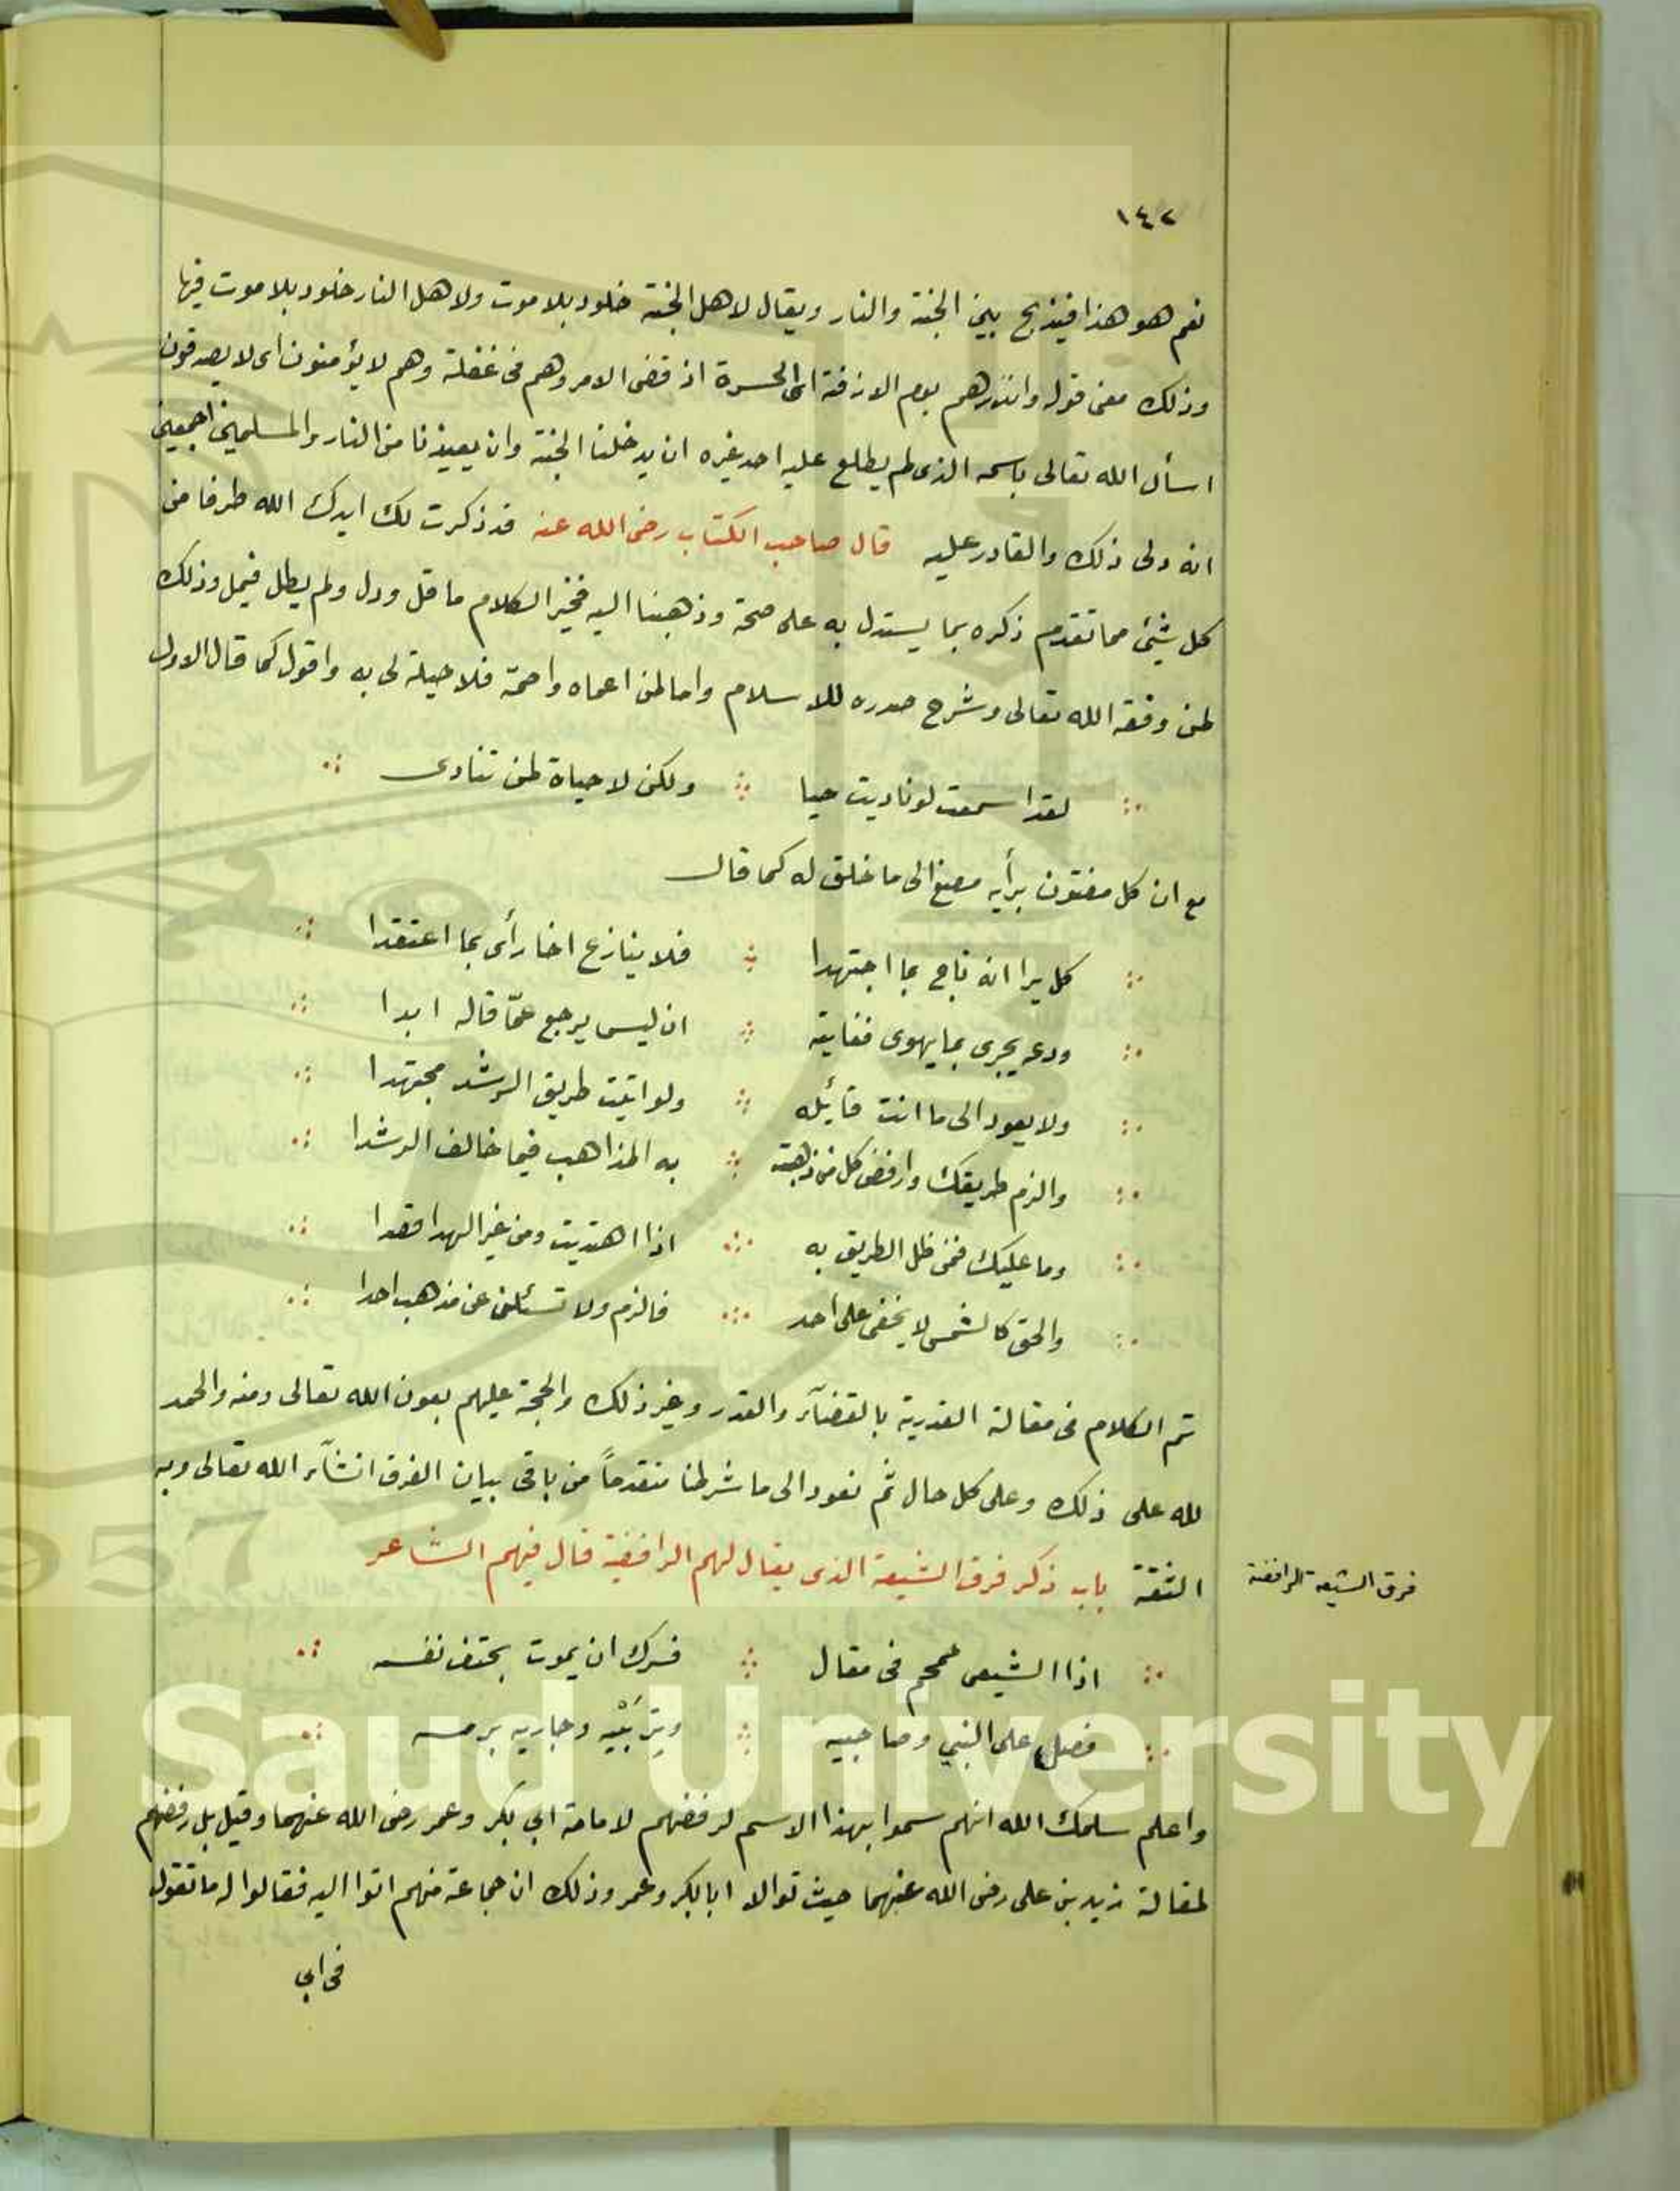 ١٤٢
نعم هو هذا فيذبح بين الجنة والنار ويقال لاهل الجنة خلود بلا موت ولاهل النار خلود بلا موت فيها
وذلك معنى قوله وانذرهم يوم الازفة اى الحسرة اذ قضى الامر وهم فى غفلة وهم لا يؤمنون اى لا يصدقون
اسأل الله تعالى باسمه الذى لم يطلع عليه احد غيره ان يدخلنا الجنة وان يعيذنا من النار والمسلمين اجمعين
انه ولى ذلك والقادر عليه قال صاحب الكتاب رضى الله عنه قد ذكرت لك ايدك الله طرفا من
كل شيئ مما تقدم ذكره بما يستدل به على صحة وذهبنا اليه فخير الكلام ما قل ودل ولم يطل فيمل وذلك
لمن وفقه الله تعالى وشرح صدره للاسلام واما لمن اعماه واصمه فلا حيلة لى به واقول كما قال الاول
لقد اسمعت لو ناديت حيا ولكن لا حياة لمن تنادى
مع ان كل مفتون برأيه مصغ الى ما خلق له كما قال
كل يرا انه ناجى بما اجتهدا فلا ينازع اخا رأى بما اعتقدا
ودعه يجرى بما يهوى فغايته ان ليس يرجع عمّا قاله ابدا
ولا يعود الى ما انت قائله ولو اتيت طريق الرشد مجتهدا
والزم طريقك وارفض كل من ذهبت به المذاهب فيما خالف الرشدا
وما عليك فمن ظل الطريق به اذا اهتديت ومن غير الهدا فقدا
والحق كالشمس لا يخفى على احد فالزم ولا تسئلن عن مذهب احدا
تم الكلام فى مقالة القدرية بالقضآء والقدر وغير ذلك والحجة عليهم بعون الله تعالى ومنه والحمد
لله على ذلك وعلى كل حال ثم نعود الى ما شرطنا متقدماً من باقى بيان الفرق انشآء الله تعالى وبه
الثقة باب ذكر فرق الشيعة الذى يقال لهم الرافضة قال فيهم الشاعر
فرق الشيعة الرافضة
اذا الشيعى مجمج فى مقال فسرك ان يموت بحتف نفسه
فصل على النبي وصاحبيه وتربيه وجاريه برمسه
واعلم سلمك الله انهم سموا بهذا الاسم لرفضهم لامامة ابي بكر وعمر رضى الله عنهما وقيل بل رفضهم
لمقالة زيد بن على رضى الله عنهما حيث توالا ابا بكر وعمر وذلك ان جماعة منهم اتوا اليه فقالوا له ما تقول
فى ابي
King Saud University
1957